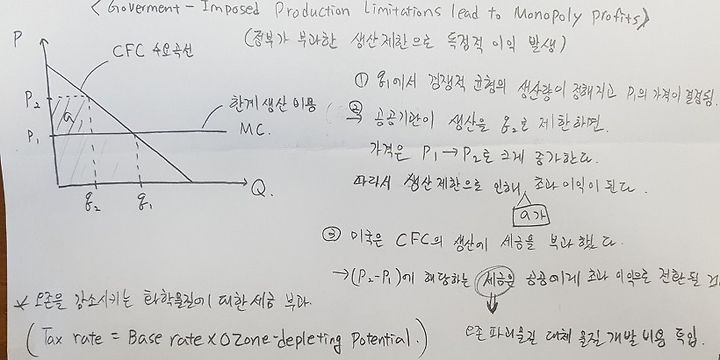 < Goverment - Imposed Production Limitations lead to Monopoly profits>
(정부가 부과한 생산제한으로 독점적 이익 발생)
P
CFC 수요곡선
P2
a
P1
한계 생산 비용
MC.
q2
q1
Q.
① q1에서 경쟁적 균형의 생산량이 정해지고 P1의 가격이 결정됨.
② 공공기관이 생산을 q2로 제한하면,
가격은 P1 → P2로 크게 증가한다.
따라서 생산제한으로 인해 초과 이익이 된다.
a가
③ 미국은 CFC의 생산에 세금을 부과했다.
→(P2-P1)에 해당하는 세금은 공공에게 초과 이익으로 전환될 것
오존 파괴물질 대체 물질 개발 비용 투입.
* 오존을 감소시키는 화학물질에 대한 세금 부과.
(Tax rate = Base rate × Ozone-depleting Potential.)